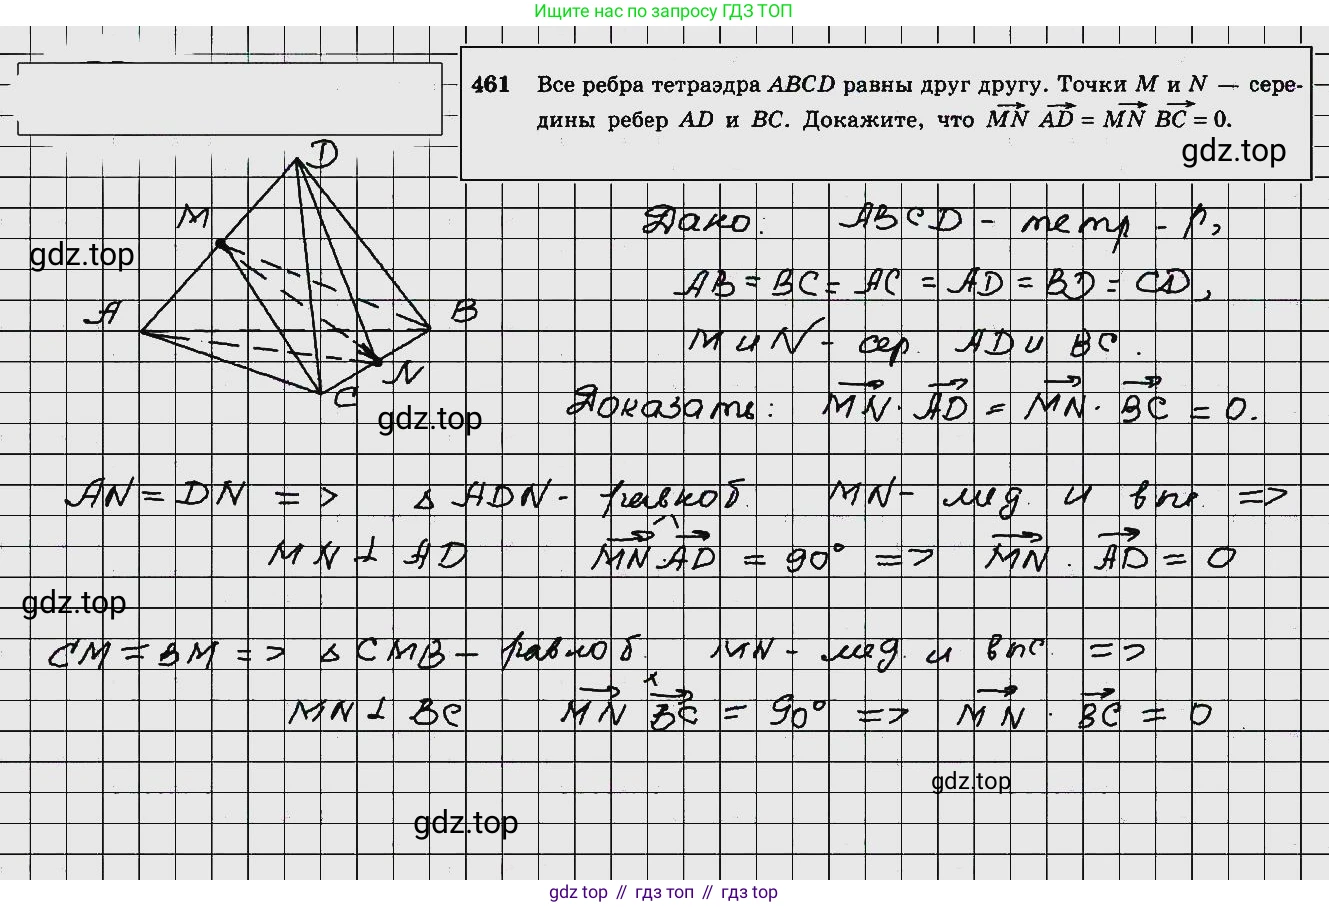 Ищите нас по запросу ГДЗ ТОП
461 Все ребра тетраэдра ABCD равны друг другу. Точки M и N — сере-
дины ребер AD и BC. Докажите, что MN AD = MN BC = 0.
gdz.top
D
M
gdz.top
A
B
N
C
gdz.top
Дано: ABCD - тетр - р,
AB = BC = AC = AD = BD = CD,
M и N - сер. AD и BC.
Доказать: MN · AD = MN · BC = 0.
AN = DN => △ ADN - равноб. MN - мед. и выс =>
MN ⊥ AD MN^AD = 90° => MN · AD = 0
gdz.top
CM = BM => △ CMB - равноб. MN - мед. и выс =>
MN ⊥ BC MN^BC = 90° => MN · BC = 0
gdz.top
gdz.top
gdz top // гдз топ // gdz top